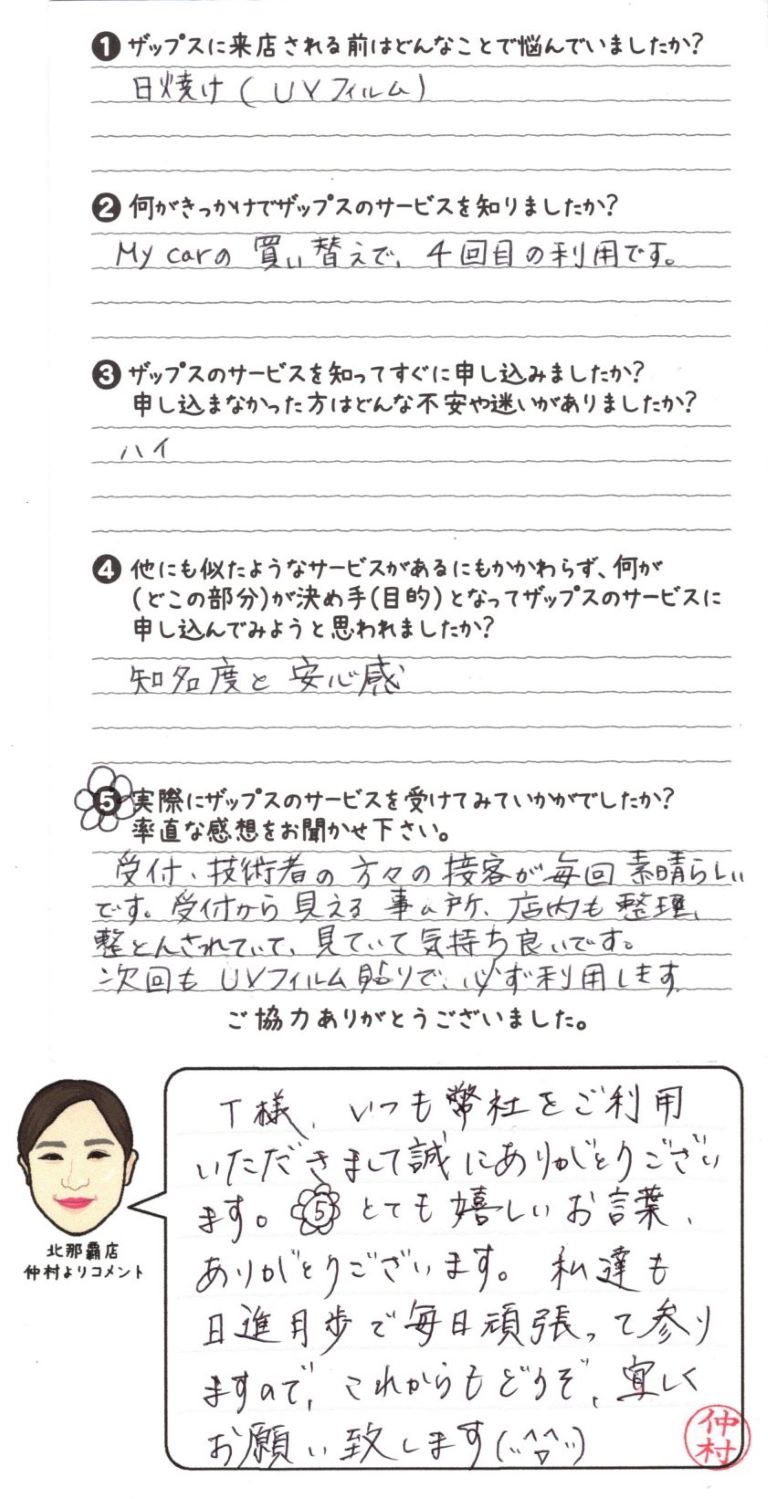 ❶ ザップスに来店される前はどんなことで悩んでいましたか?
日焼け(UVフィルム)
❷ 何がきっかけでザップスのサービスを知りましたか?
My carの買い替えで、4回目の利用です。
❸ ザップスのサービスを知ってすぐに申し込みましたか?
申し込まなかった方はどんな不安や迷いがありましたか?
ハイ
❹ 他にも似たようなサービスがあるにもかかわらず、何が
(どこの部分)が決め手(目的)となってザップスのサービスに
申し込んでみようと思われましたか?
知名度と安心感
❺ 実際にザップスのサービスを受けてみていかがでしたか?
率直な感想をお聞かせ下さい。
受付、技術者の方々の接客が毎回素晴らしい
です。受付から見える事ム所、店内も整理、
整とんされていて、見ていて気持ち良いです。
次回もUVフィルム貼りで、必ず利用します
ご協力ありがとうございました。
T様、いつも弊社をご利用
いただきまして誠にありがとうござい
ます。⑤とても嬉しいお言葉、
ありがとうございます。私達も
日進月歩で毎日頑張って参り
ますので、これからもどうぞ、宜しく
お願い致します(∵^▽^∵)
北那覇店
仲村よりコメント
仲村